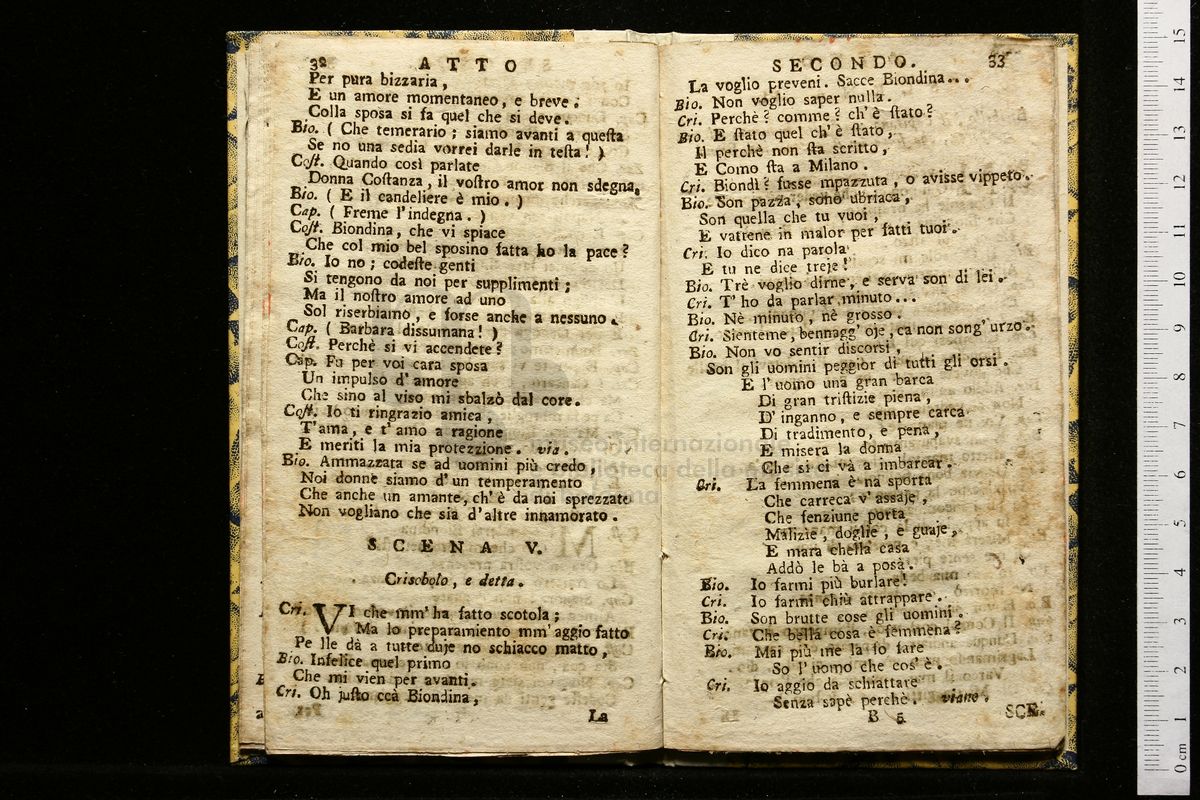 32 ATTO
Per pura bizzaria,
E un amore momentaneo, e breve.
Colla sposa si fa quel che si deve.
Bio. ( Che temerario ; siamo avanti a questa
Se no una sedia vorrei darle in testa! )
Cost. Quando così parlate
Donna Costanza, il vostro amor non sdegna.
Bio. ( E il candeliere è mio. )
Cap. ( Freme l'indegna. )
Cost. Biondina, che vi spiace
Che col mio bel sposino fatta ho la pace?
Bio. Io no ; codeste genti
Si tengono da noi per supplimenti ;
Ma il nostro amore ad uno
Sol riserbiamo, e forse anche a nessuno.
Cap. ( Barbara dissumana! )
Cost. Perchè si vi accendete?
Cap. Fu per voi cara sposa
Un impulso d'amore
Che sino al viso mi sbalzò dal core.
Cost. Io ti ringrazio amica,
T'ama, e t'amo a ragione
E meriti la mia protezzione. via.
Bio. Ammazzata se ad uomini più credo,
Noi donne siamo d'un temperamento
Che anche un amante, ch'è da noi sprezzato
Non vogliano che sia d'altre innamorato.
SCENA V.
Crisobolo, e detta.
Cri. VI che mm'ha fatto scotola ;
Ma lo preparamiento mm'aggio fatto
Pe lle dà a tutte duje no schiacco matto,
Bio. Infelice quel primo
Che mi vien per avanti.
Cri. Oh justo ccà Biondina,
La
SECONDO. 33
La voglio preveni. Sacce Biondina...
Bio. Non voglio saper nulla.
Cri. Perchè? comme? ch'è stato?
Bio. E stato quel ch'è stato,
Il perchè non sta scritto,
E Como sta a Milano.
Cri. Biondì? fusse mpazzuta, o avisse vippeto.
Bio. Son pazza, sono ubriaca,
Son quella che tu vuoi,
E vatrene in malor per fatti tuoi.
Cri. Io dico na parola
E tu ne dice treje!
Bio. Trè voglio dirne, e serva son di lei.
Cri. T'ho da parlar minuto...
Bio. Nè minuto, nè grosso.
Cri. Sienteme, bennagg' oje, ca non song' urzo.
Bio. Non vo sentir discorsi,
Son gli uomini peggior di tutti gli orsi.
E l'uomo una gran barca
Di gran tristizie piena,
D'inganno, e sempre carca
Di tradimento, e pena,
E misera la donna
Che si ci và a imbarcar.
Cri. La femmena è na sporta
Che carreca v'assaje,
Che fenziune porta
Malizie, doglie, e guaje,
E mara chella casa
Addò le bà a posà.
Bio. Io farmi più burlare!
Cri. Io farmi chiù attrappare.
Bio. Son brutte cose gli uomini.
Cri. Che bella cosa è femmena?
Bio. Mai più me la fo fare
So l'uomo che cos'è.
Cri. Io aggio da schiattare
Senza sapè perchè. viano.
B 5 SCE-